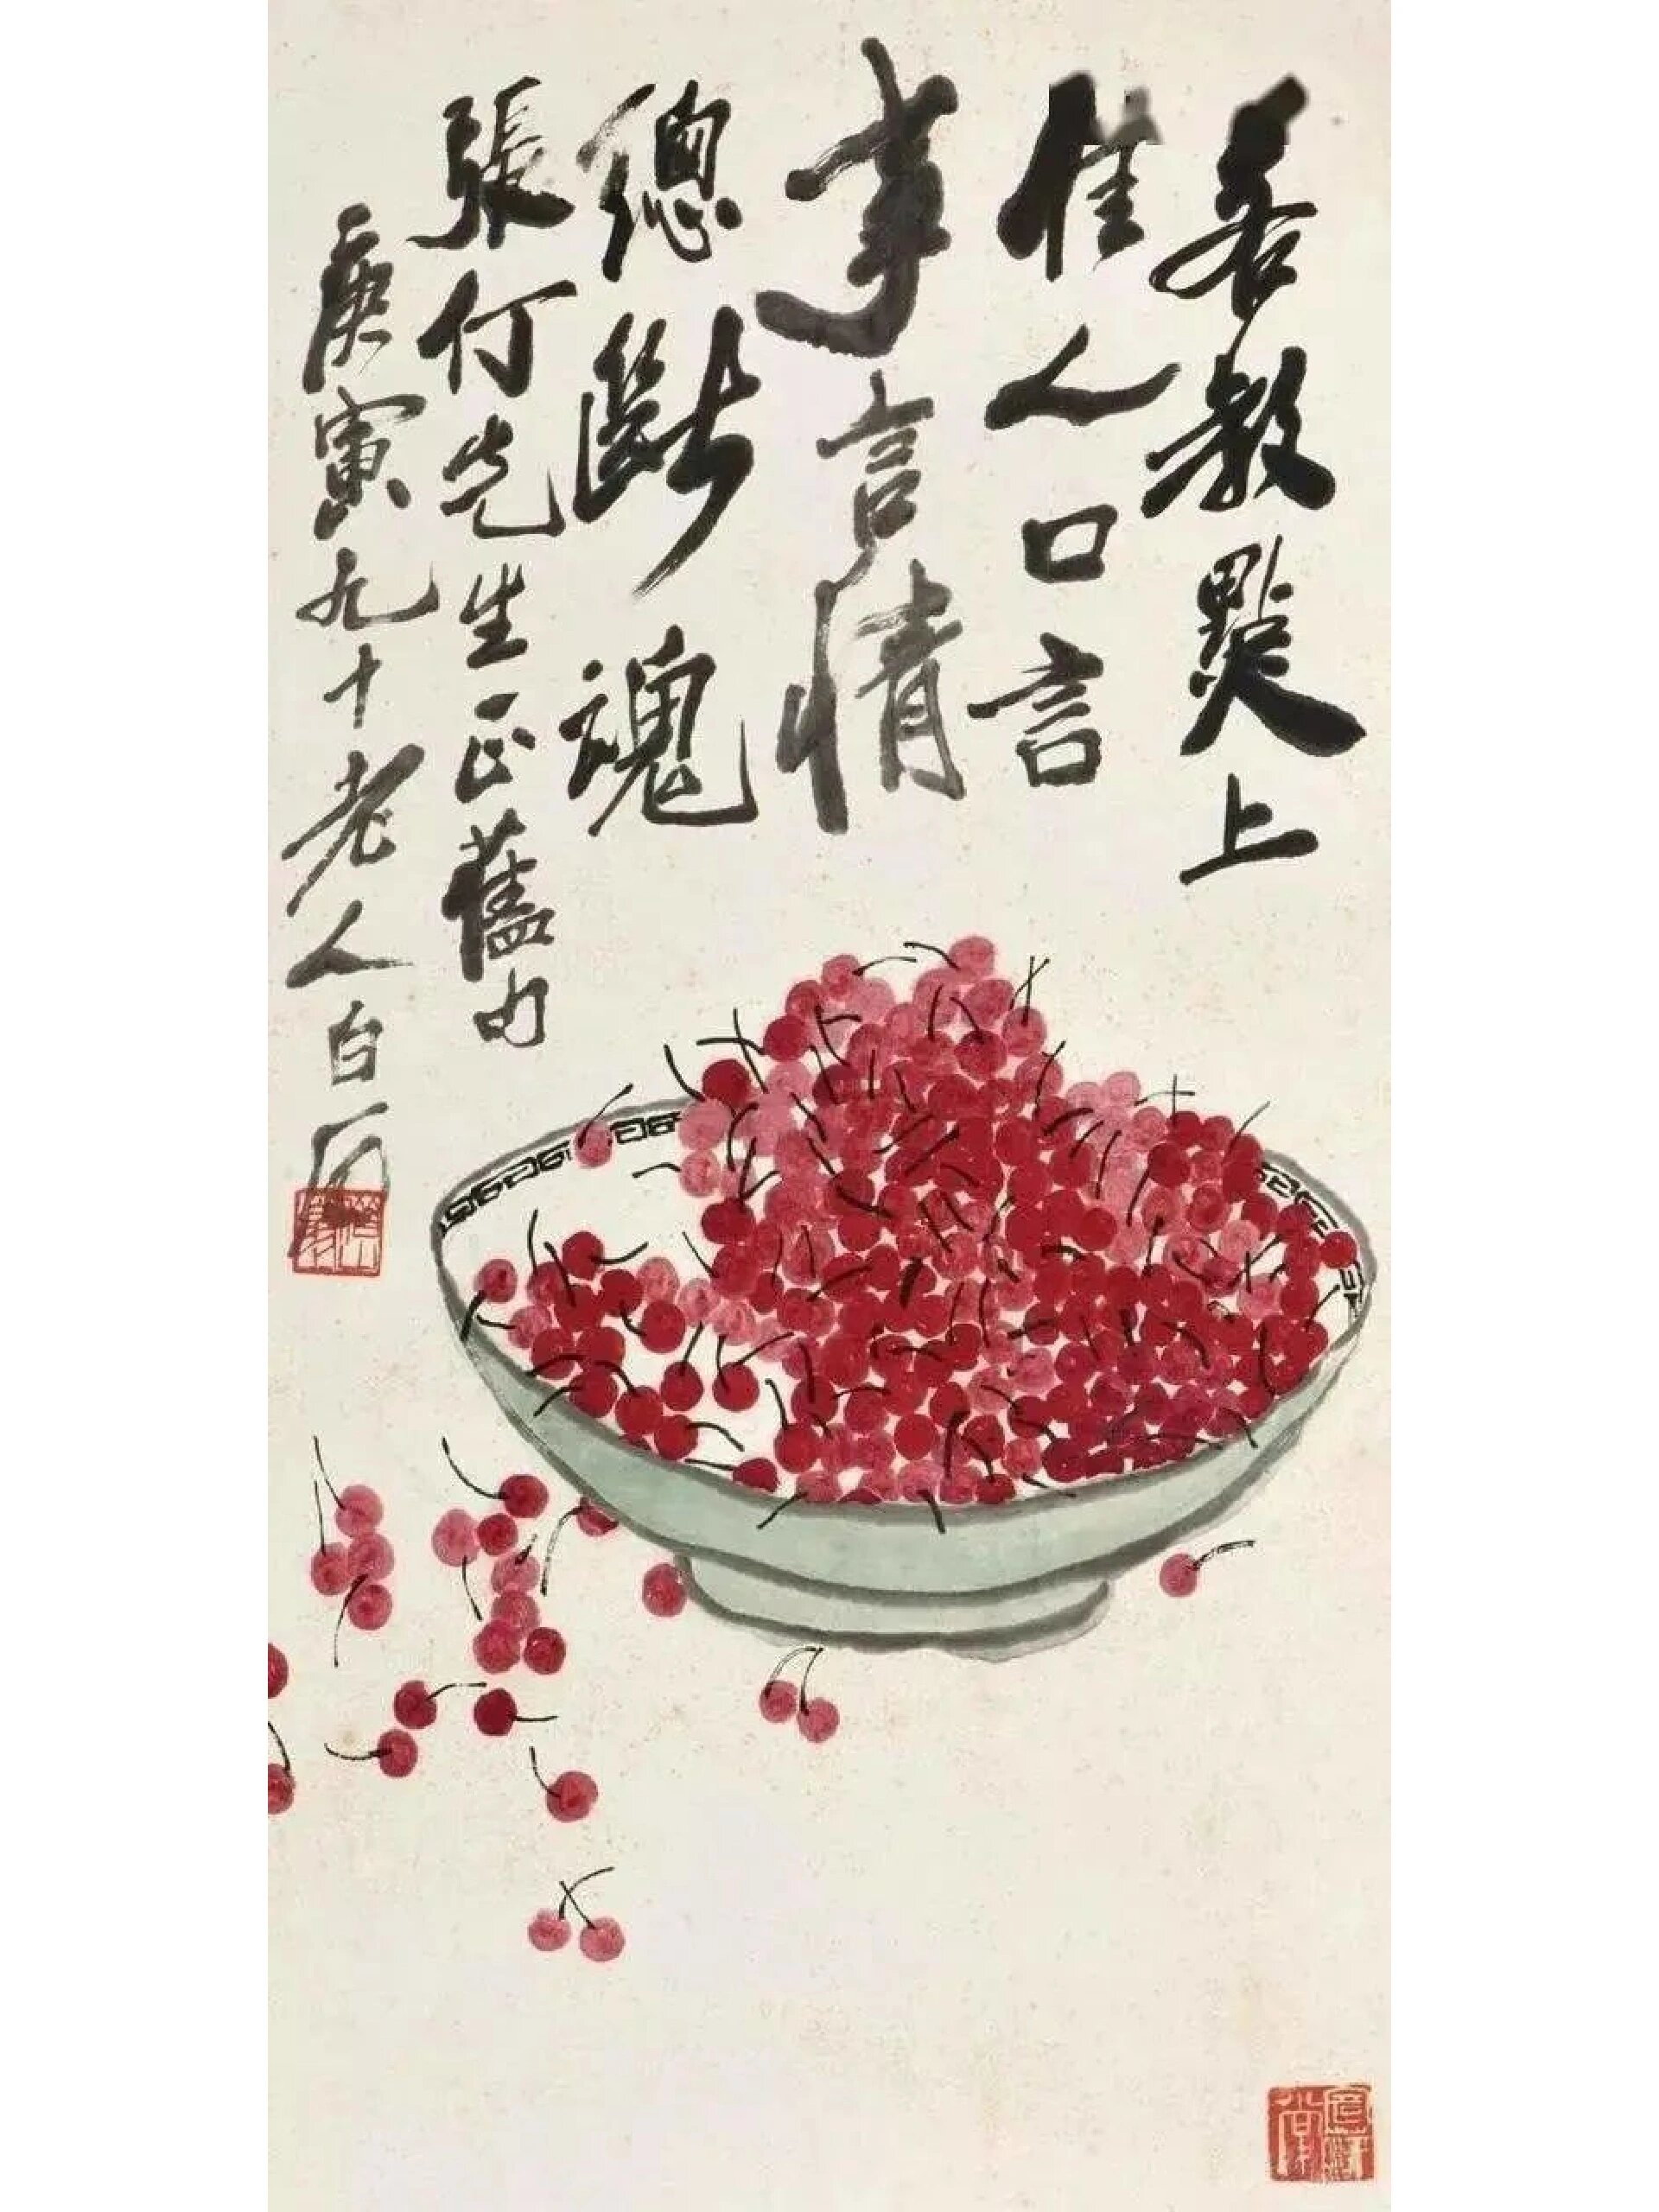 若教點上
佳人口言
事言情
總斷魂
張何先生正舊句
庚寅九十老人白石